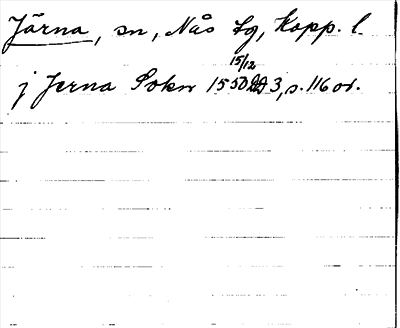 Järna, sn, Nås tg, Kopp. l.
15/12
j Jerna Sokn 1550 DD 3, s. 116 or.